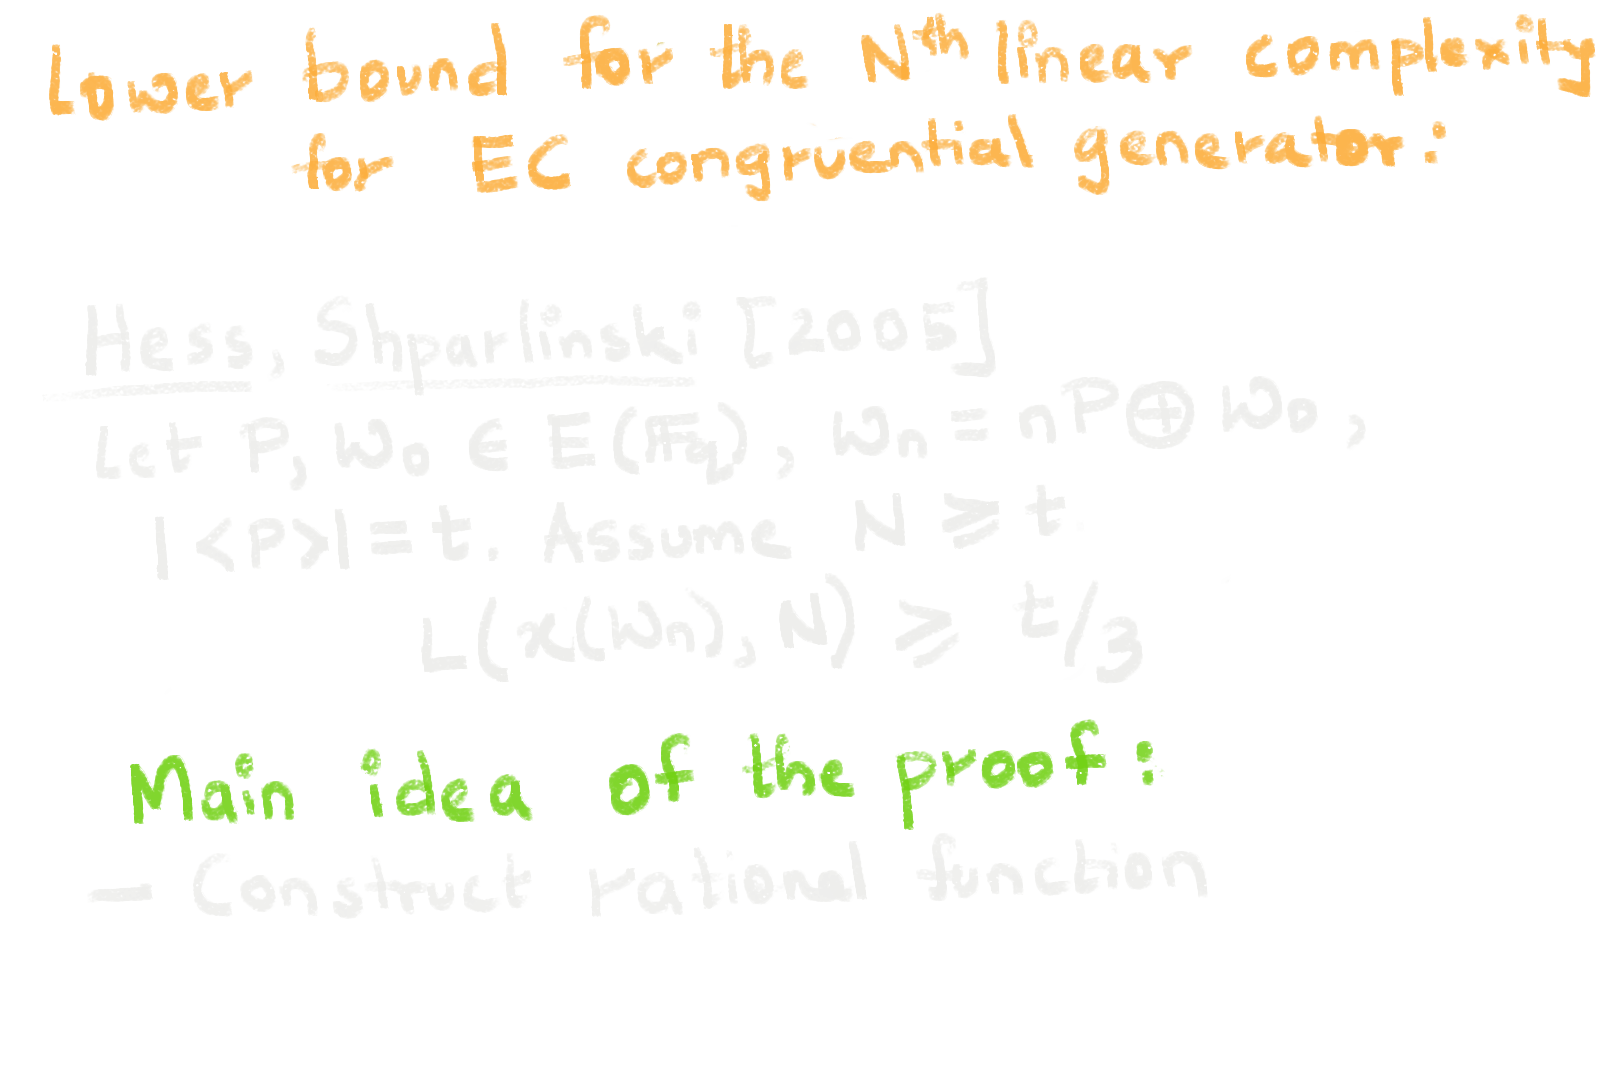 Lower bound for the Nth linear complexity
for EC congruential generator:
Hess, Shparlinski [2005]
Let P, W₀ ∈ E(𝔽q), Wn = nP ⊕ W₀,
|<P>| = t. Assume N ≥ t
L(x(Wn), N) ≥ t/3
Main idea of the proof:
— Construct rational function